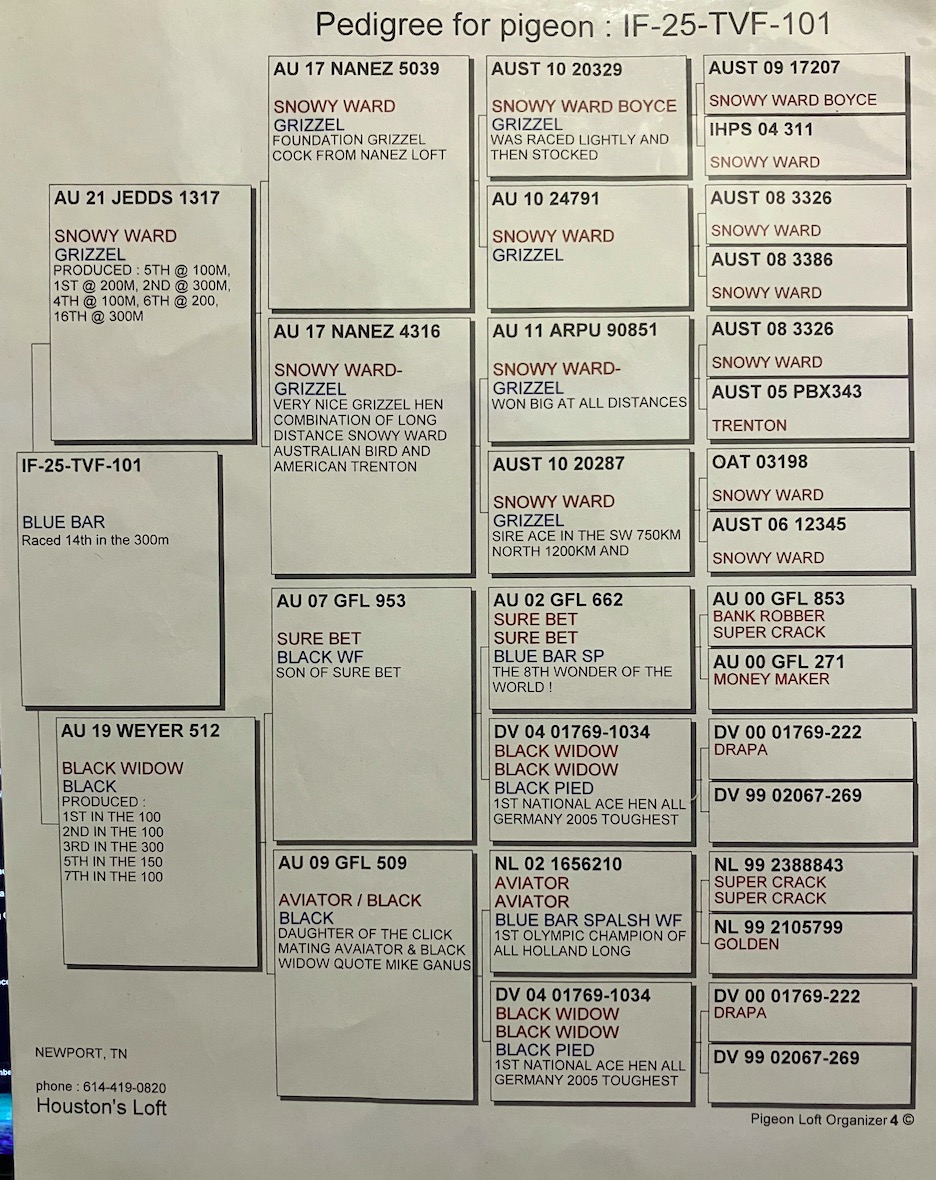 Pedigree for pigeon : IF-25-TVF-101
AU 17 NANEZ 5039
SNOWY WARD
GRIZZEL
FOUNDATION GRIZZEL
COCK FROM NANEZ LOFT
AUST 10 20329
SNOWY WARD BOYCE
GRIZZEL
WAS RACED LIGHTLY AND
THEN STOCKED
AUST 09 17207
SNOWY WARD BOYCE
IHPS 04 311
SNOWY WARD
AU 21 JEDDS 1317
SNOWY WARD
GRIZZEL
PRODUCED : 5TH @ 100M,
1ST @ 200M, 2ND @ 300M,
4TH @ 100M, 6TH @ 200,
16TH @ 300M
AU 10 24791
SNOWY WARD
GRIZZEL
AUST 08 3326
SNOWY WARD
AUST 08 3386
SNOWY WARD
AU 17 NANEZ 4316
SNOWY WARD-
GRIZZEL
VERY NICE GRIZZEL HEN
COMBINATION OF LONG
DISTANCE SNOWY WARD
AUSTRALIAN BIRD AND
AMERICAN TRENTON
AU 11 ARPU 90851
SNOWY WARD-
GRIZZEL
WON BIG AT ALL DISTANCES
AUST 08 3326
SNOWY WARD
AUST 05 PBX343
TRENTON
IF-25-TVF-101
BLUE BAR
Raced 14th in the 300m
AUST 10 20287
SNOWY WARD
GRIZZEL
SIRE ACE IN THE SW 750KM
NORTH 1200KM AND
OAT 03198
SNOWY WARD
AUST 06 12345
SNOWY WARD
AU 07 GFL 953
SURE BET
BLACK WF
SON OF SURE BET
AU 02 GFL 662
SURE BET
SURE BET
BLUE BAR SP
THE 8TH WONDER OF THE
WORLD !
AU 00 GFL 853
BANK ROBBER
SUPER CRACK
AU 00 GFL 271
MONEY MAKER
AU 19 WEYER 512
BLACK WIDOW
BLACK
PRODUCED :
1ST IN THE 100
2ND IN THE 100
3RD IN THE 300
5TH IN THE 150
7TH IN THE 100
DV 04 01769-1034
BLACK WIDOW
BLACK WIDOW
BLACK PIED
1ST NATIONAL ACE HEN ALL
GERMANY 2005 TOUGHEST
DV 00 01769-222
DRAPA
DV 99 02067-269
AU 09 GFL 509
AVIATOR / BLACK
BLACK
DAUGHTER OF THE CLICK
MATING AVAIATOR & BLACK
WIDOW QUOTE MIKE GANUS
NL 02 1656210
AVIATOR
AVIATOR
BLUE BAR SPALSH WF
1ST OLYMPIC CHAMPION OF
ALL HOLLAND LONG
NL 99 2388843
SUPER CRACK
SUPER CRACK
NL 99 2105799
GOLDEN
DV 04 01769-1034
BLACK WIDOW
BLACK WIDOW
BLACK PIED
1ST NATIONAL ACE HEN ALL
GERMANY 2005 TOUGHEST
DV 00 01769-222
DRAPA
DV 99 02067-269
NEWPORT, TN
phone : 614-419-0820
Houston's Loft
Pigeon Loft Organizer 4 ©